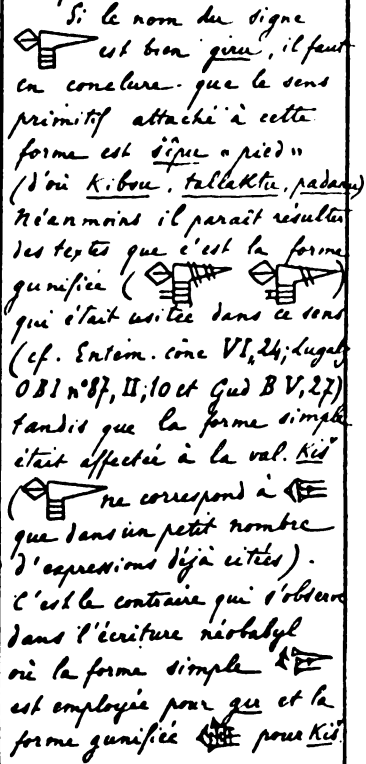 Si le nom du signe
est bien giru, il faut
en conclure que le sens
primitif attaché à cette
forme est šêpu « pied »
(d'où Kibsu, tallaktu, padanu)
Néanmoins il paraît résulter
des textes que c'est la forme
gunifiée ( )
qui était usitée dans ce sens
(cf. Entém. cône VI, 24; Lugalz
OBI n° 87, II, 10 et Gud B V, 27)
tandis que la forme simple
était affectée à la val. Kiš
( ne correspond à
que dans un petit nombre
d'expressions déjà citées).
C'est le contraire qui s'observe
dans l'écriture néobabyl
où la forme simple
est employée pour gir et la
forme gunifiée pour Kiš